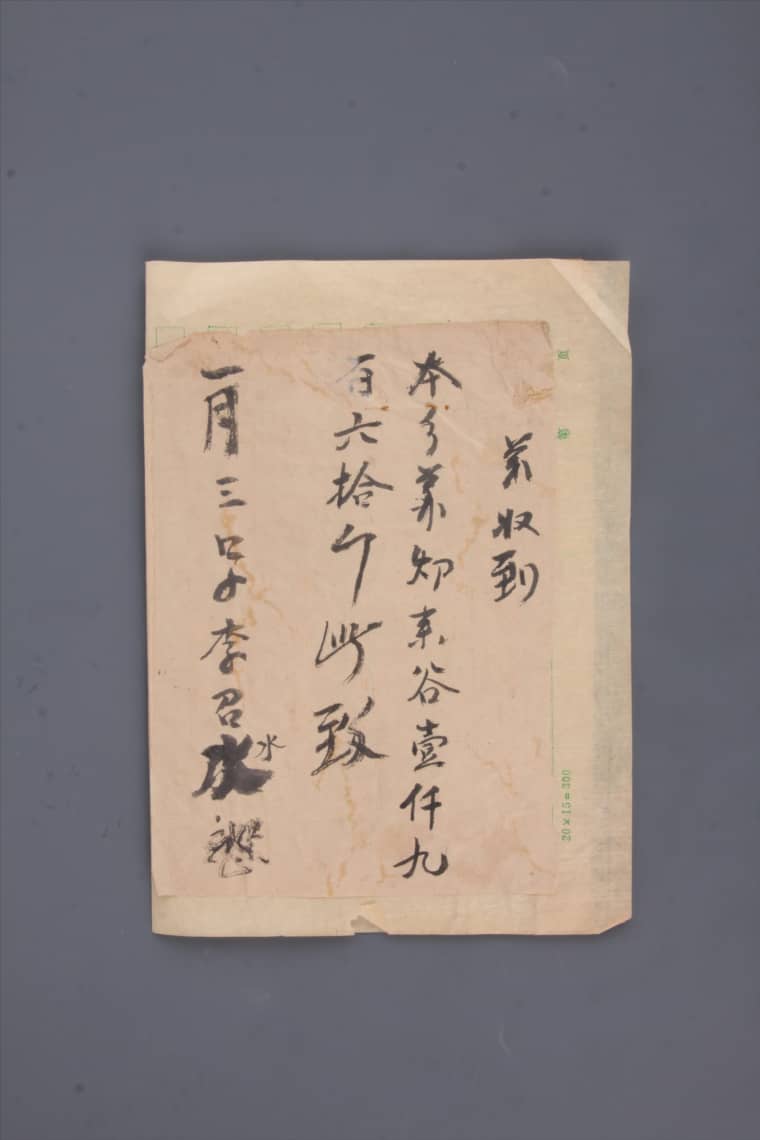 兹收到
本乡来谷壹仟九
百六拾斤此致
一月三日李召水
第 页
20×15=300